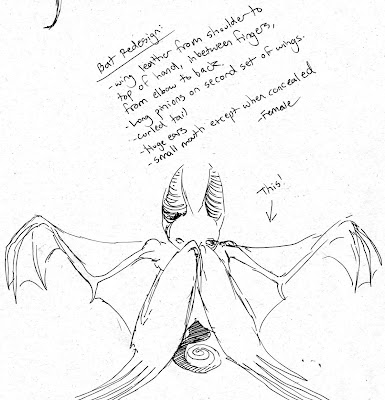 Bat Redesign:
-wing leather from shoulder to
top of hand, inbetween fingers,
from elbow to back.
-Long pinions on second set of wings.
-curled tail
-Huge ears
-small mouth except when concealed
-Female
This!